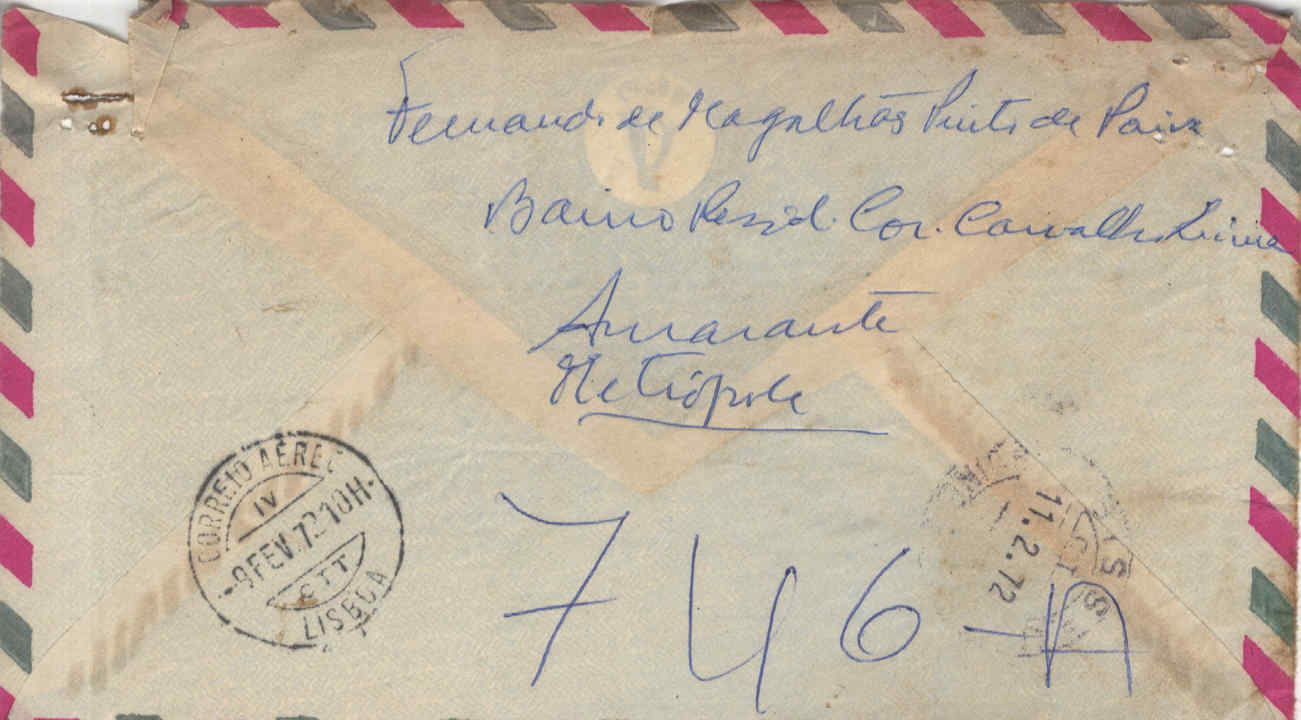 Fernando de Magalhães Pinto de Paiva
Bairro Resid. Cor. Carvalho Lima
Amarante
Metrópole
CORREIO AÉREO
IV
-9FEV.72 10H.
CTT
LISBOA
11.2.72
746-A